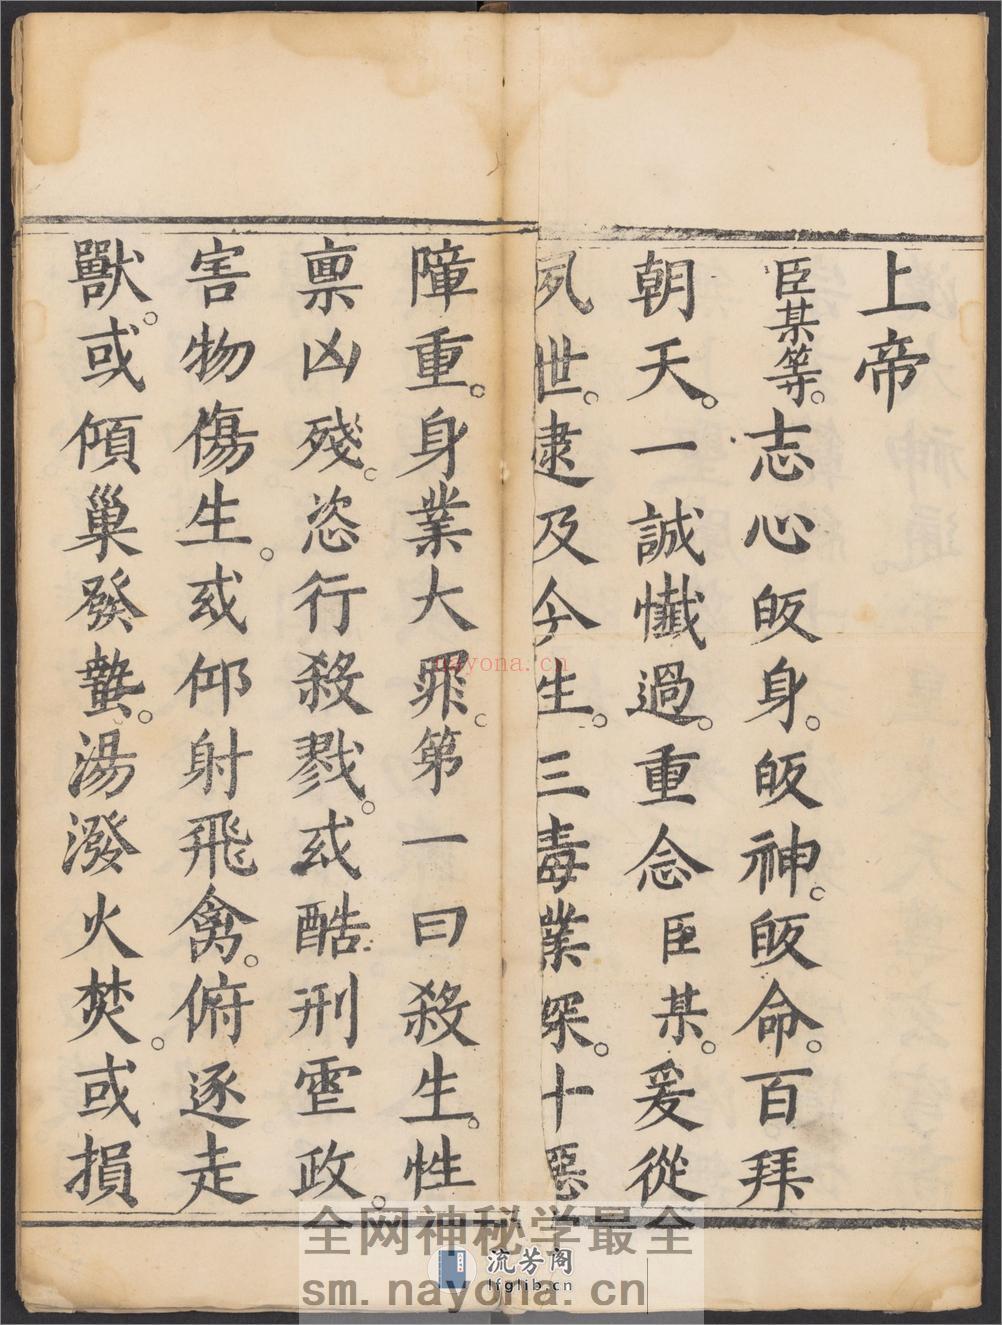 上帝
臣某等。志心皈身。皈神。皈命。百拜
朝天。一誠懺過。重念臣某。爰從
夙世。逮及今生。三毒業深。十惡
障重。身業大罪。第一曰殺生。性
禀凶殘。恣行殺戮。或酷刑虐政。
害物傷生。或仰射飛禽。俯逐走
獸。或傾巢發蟄。湯潑火焚。或損
nayona.cn
全网神秘学最全
流芳阁
lfglib.cn
sm.nayona.cn